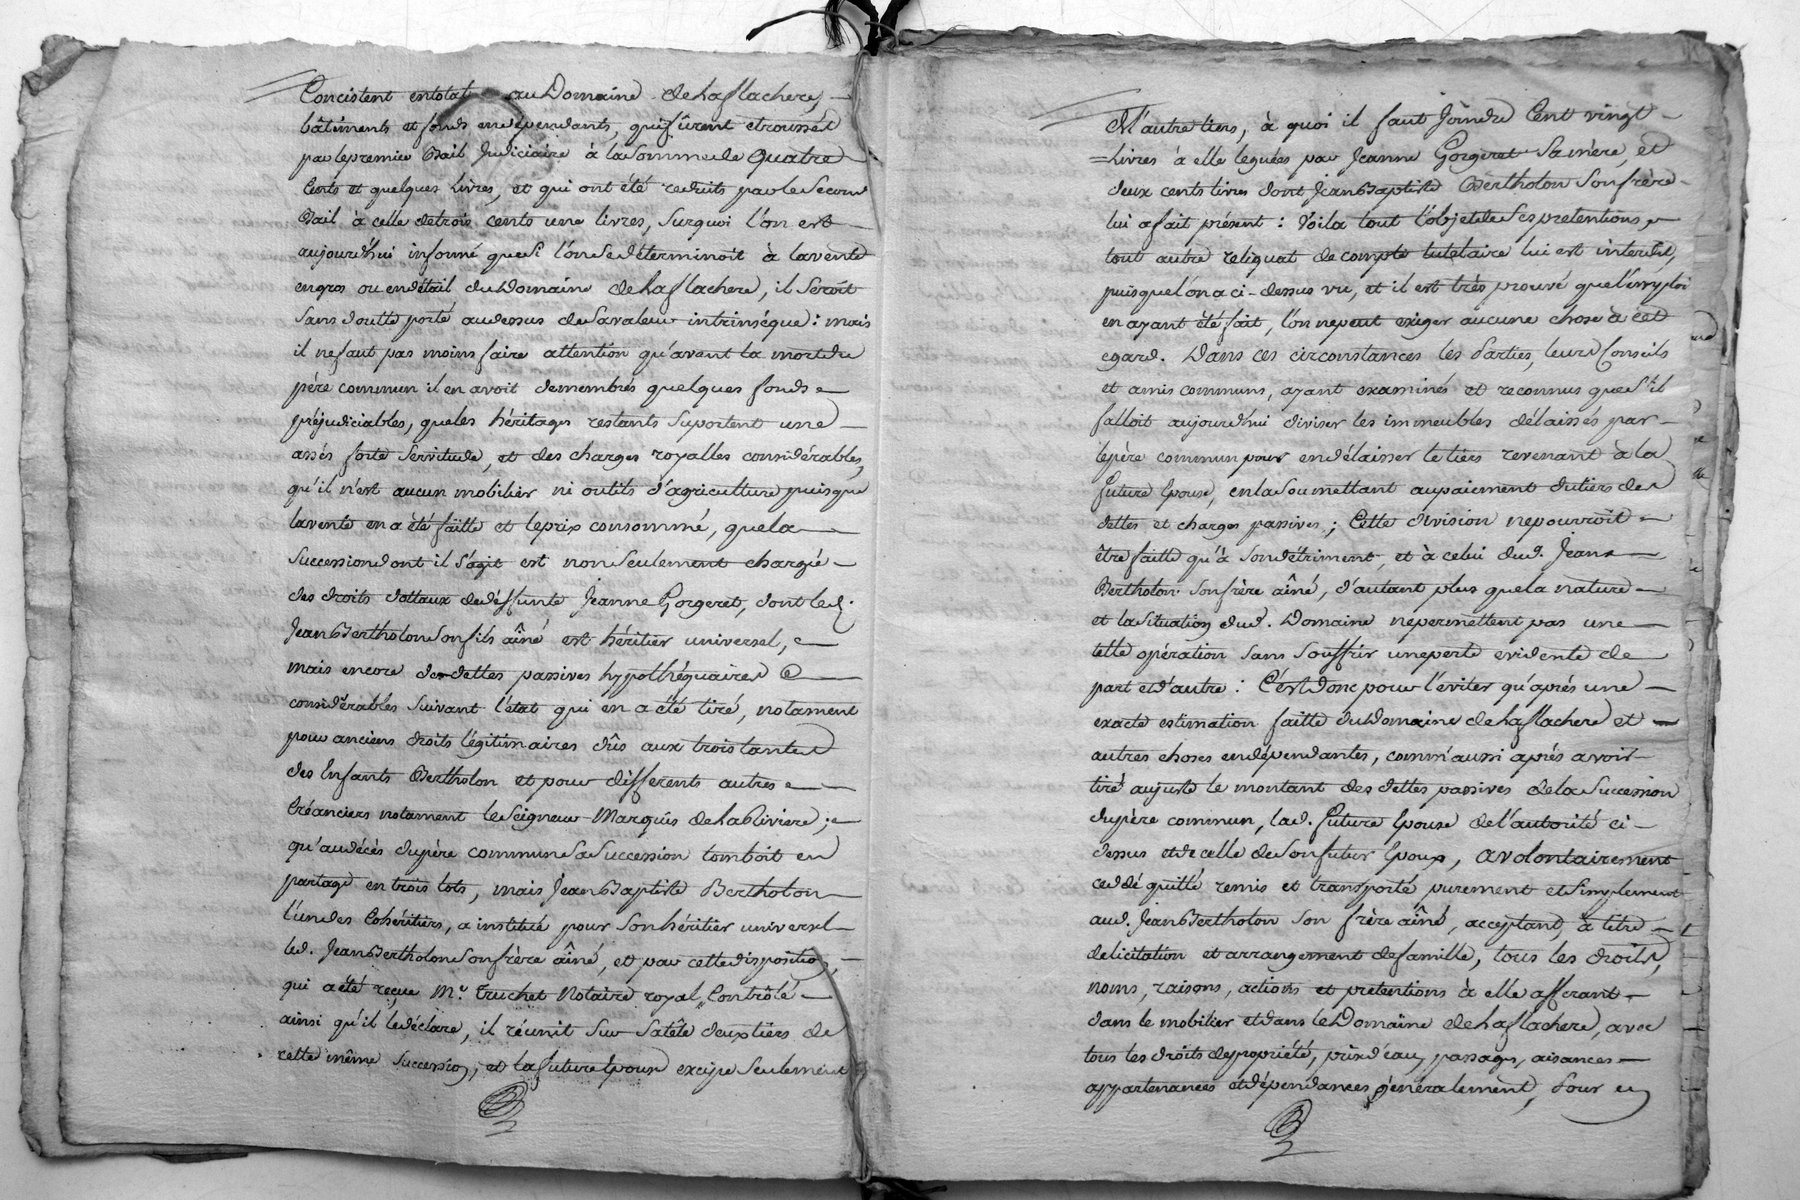 Concistent entotal au Domaine de la flachere,
bâtiments et fonds en dépendants, qui fûrent etroussés
par le premier Bail Judiciaire à la Somme de quatre
Cents et quelques Livres, et qui ont été reduits par le Second
Bail à celle de trois cents une livres, Surquoi l'on est
aujourd'hui informé que Si l'on Se déterminoit à la vente
en gros ou en détail du Domaine de la flachere, il Seroit
Sans doutte porté audessus de Sa valeur intrinséque : mais
il ne faut pas moins faire attention qu'avant la mort du
père commun il en avoit demembrés quelques fonds
préjudiciables, que les héritages restants Suportent une
assés forte Servitude, et des charges royalles considérables,
qu'il n'est aucun mobilier ni outils d'agriculture puisque
la vente en a été faitte et le prix consommé, que la
Succession dont il S'agit est non Seulement chargée
des droits dottaux de déffunte Jeanne Gorgeret, dont led.
Jean Bertholon Son fils aîné est héritier universel,
mais encore des dettes passives hypothéquaires
considérables Suivant l'état qui en a été tiré, notament
pour anciens droits légitimaires dûs aux trois tantes
des Enfants Bertholon et pour differents autres
Créanciers notament le Seigneur Marquis de la Riviere ;
qu'au décès du père commun Sa Succession tomboit en
partage en trois lots, mais Jean Baptiste Bertholon
l'un des Cohéritiers, a institué pour Son héritier universel
led. Jean Bertholon Son frère aîné, et par cette disposition,
qui a été reçue Mᵉ. Truchet Notaire royal, Contrôlé
ainsi qu'il le déclare, il réunit Sur Sa tête deux tiers de
cette même Succession, et la future Epouse excipe Seulement
de l'autre tiers, à quoi il faut Joindre Cent vingt
Livres à elle leguées par Jeanne Gorgeret Sa mère, et
deux cents livres dont Jean Baptiste Bertholon Son frère
lui a fait présent : Voila tout l'objet de Ses pretentions,
tout autre reliquat de compte tutelaire lui est interdit,
puisque l'on a ci-dessus vu, et il est très prouvé que l'employ
en ayant été fait, l'on ne peut exiger aucune chose à cet
egard. Dans ces circonstances les Parties, leurs Conseils
et amis communs, ayant examinés et reconnus que S'il
falloit aujourd'hui diviser les immeubles délaissés par
le père commun pour en délaisser le tiers revenant à la
future Epouse, en la Soumettant au paiement du tiers des
dettes et charges passives ; Cette division ne pourroit
être faitte qu'à Son détriment, et à celui dud. Jean
Bertholon Son frère aîné, d'autant plus que la nature
et la Situation dud. Domaine ne permettent pas une
telle opération Sans Souffrir une perte evidente de
part et d'autre : C'est donc pour l'éviter qu'après une
exacte estimation faitte du Domaine de la flachere et
autres choses en dépendantes, comm'aussi après avoir
tiré aujuste le montant des dettes passives de la Succession
du père commun, lad. future Epouse de l'autorité ci-
dessus et de celle de Son futur Epoux, a volontairement
ceddé quitté remis et transporté purement et Simplement
aud. Jean Bertholon Son frère aîné, acceptant, à titre
de licitation et arrangement de famille, tous les droits,
noms, raisons, actions et pretentions à elle afferant
dans le mobilier et dans le Domaine de la flachere, avec
tous les droits de propriété, prise d'eau, passages, aisances
appartenances et dépendances généralement, Pour en